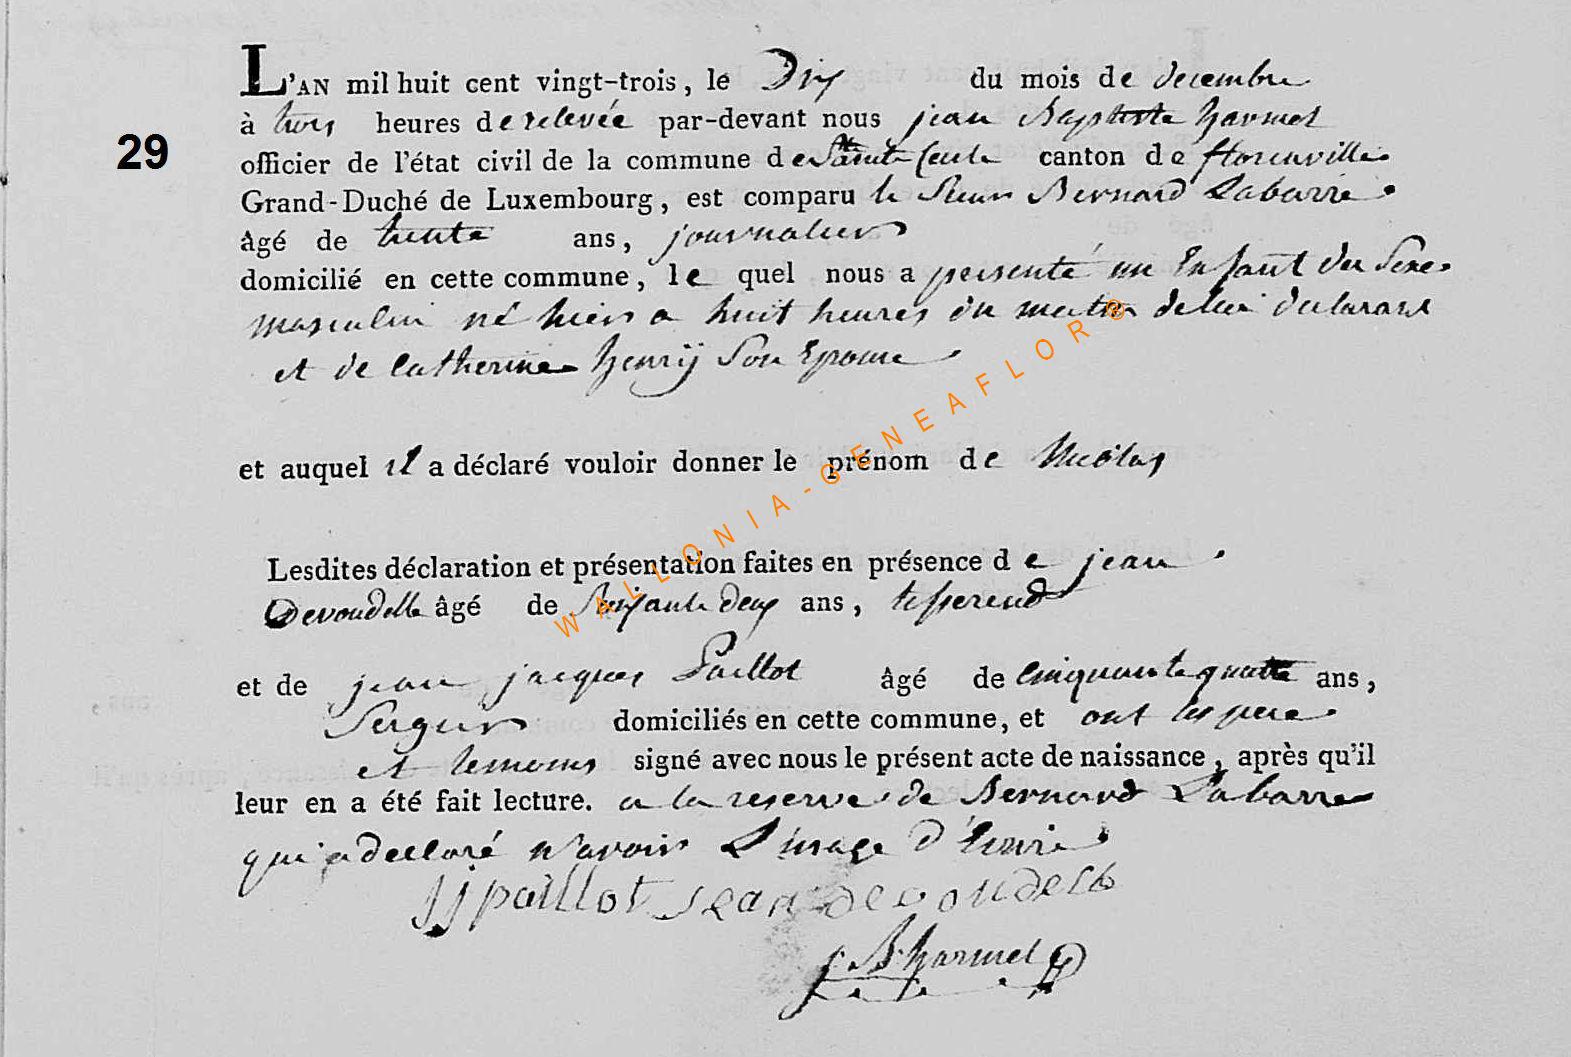 29
L'AN mil huit cent vingt-trois, le Dix du mois de decembre
à trois heures de relevée par-devant nous jean Baptiste harmel
officier de l'état civil de la commune de Sainte Cecile canton de florenville
Grand-Duché de Luxembourg, est comparu le Sieur Bernard Labarre
âgé de trente ans, journalier
domicilié en cette commune, le quel nous a presenté un Enfant du Sexe
masculin né hier a huit heures du matin de lui declarant
et de Catherine henrÿ Son Epouse
et auquel il a déclaré vouloir donner le prénom de Nicolas
Lesdites déclaration et présentation faites en présence de jean
Devoudelle âgé de Soixante deux ans, tisserend
et de jean jacques Paillot âgé de cinquante quatre ans,
Serger domiciliés en cette commune, et ont les pere
et temoins signé avec nous le présent acte de naissance, après qu'il
leur en a été fait lecture. a la reserve de Bernard Labarre
qui a declaré n'avoir L'usage d'Ecrire
jj paillot jean devoudelle
J. B. harmel
WALLONIA-GENEAFLOR®